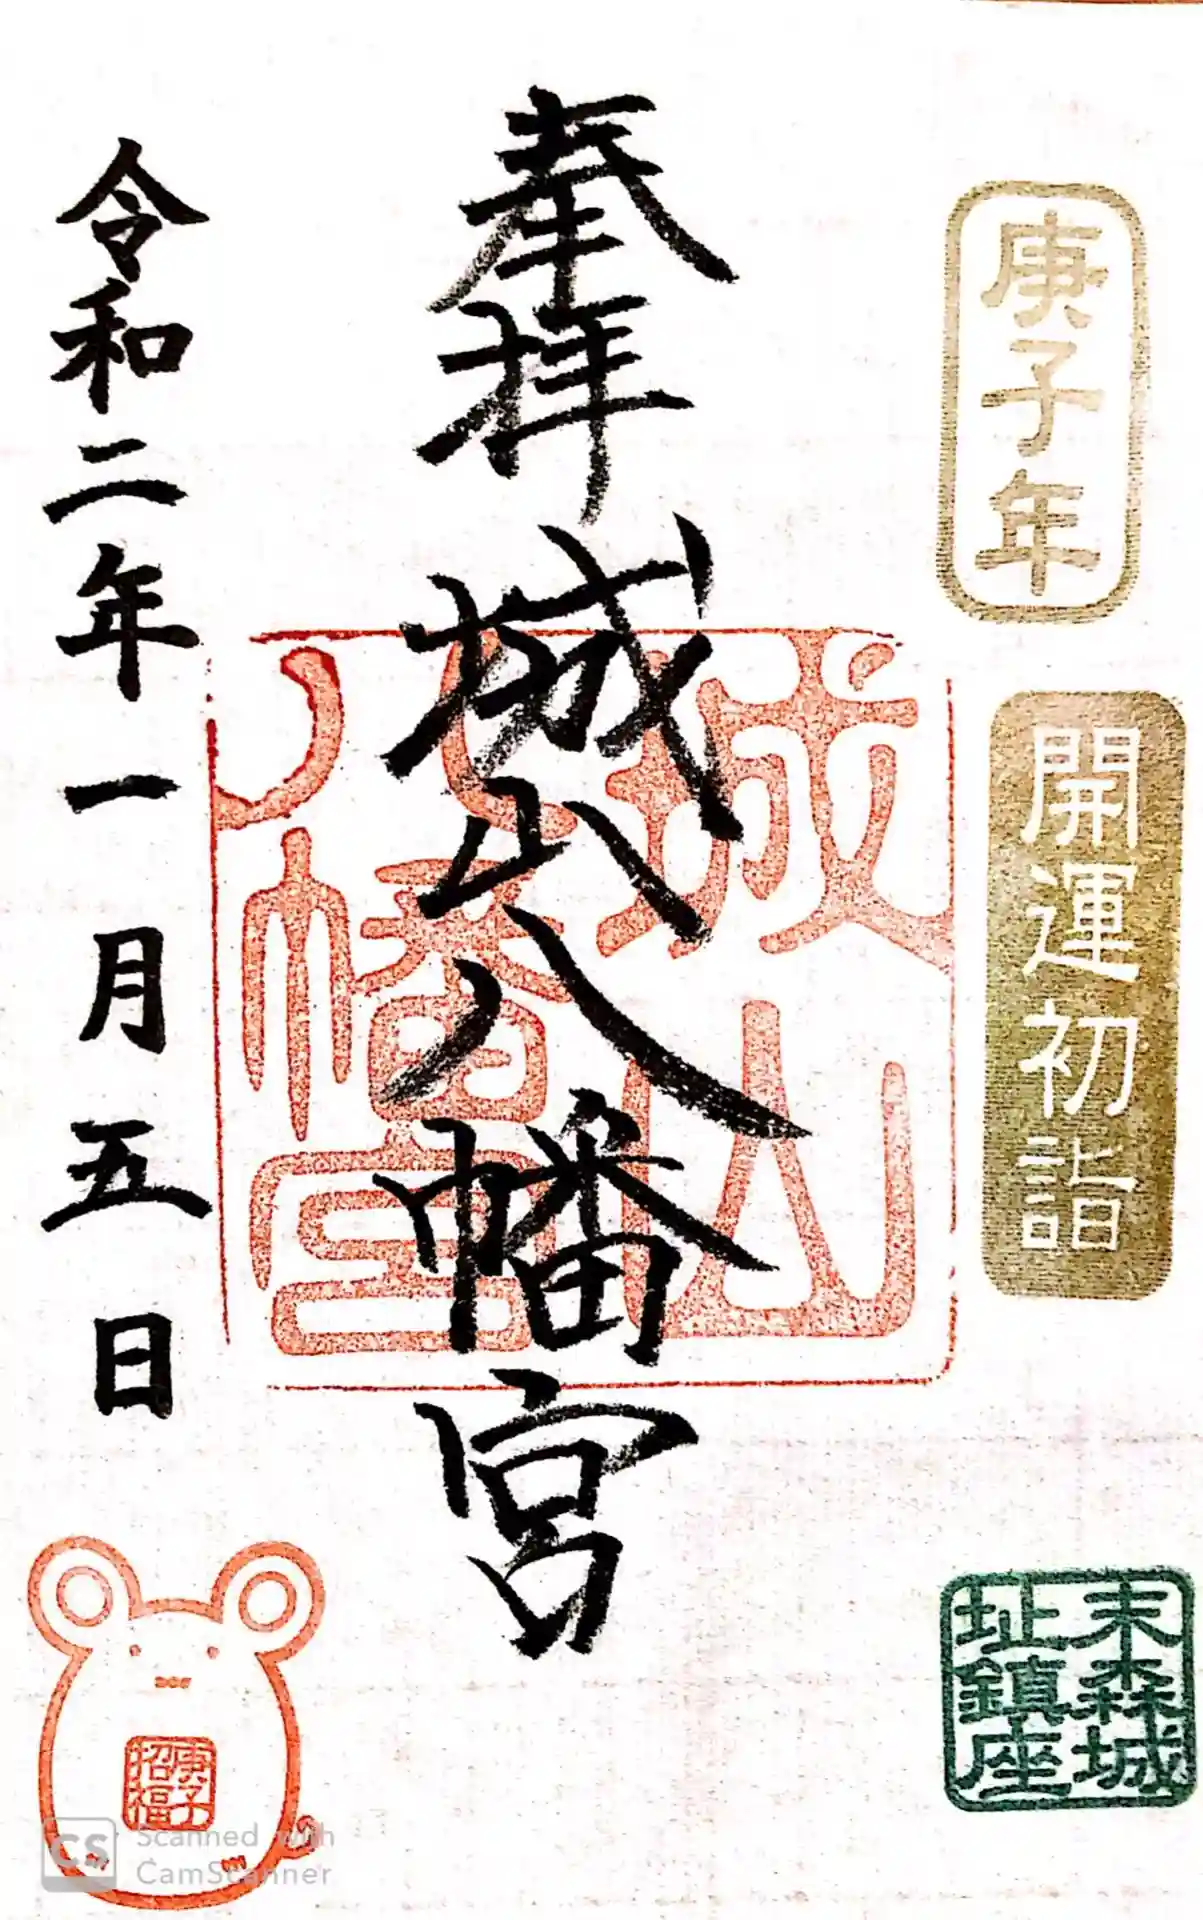 庚子年
開運初詣
末森城
址鎮座
奉拝
城山八幡宮
城山
八幡宮
令和二年一月五日
庚子
招福
CS
Scanned with
CamScanner